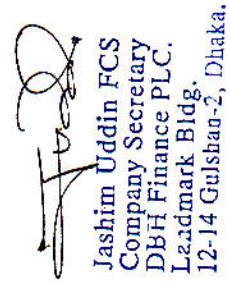 Jashim Uddin FCS
Company Secretary
DBH Finance PLC.
Landmark Bldg.
12-14 Gulshan-2, Dhaka.